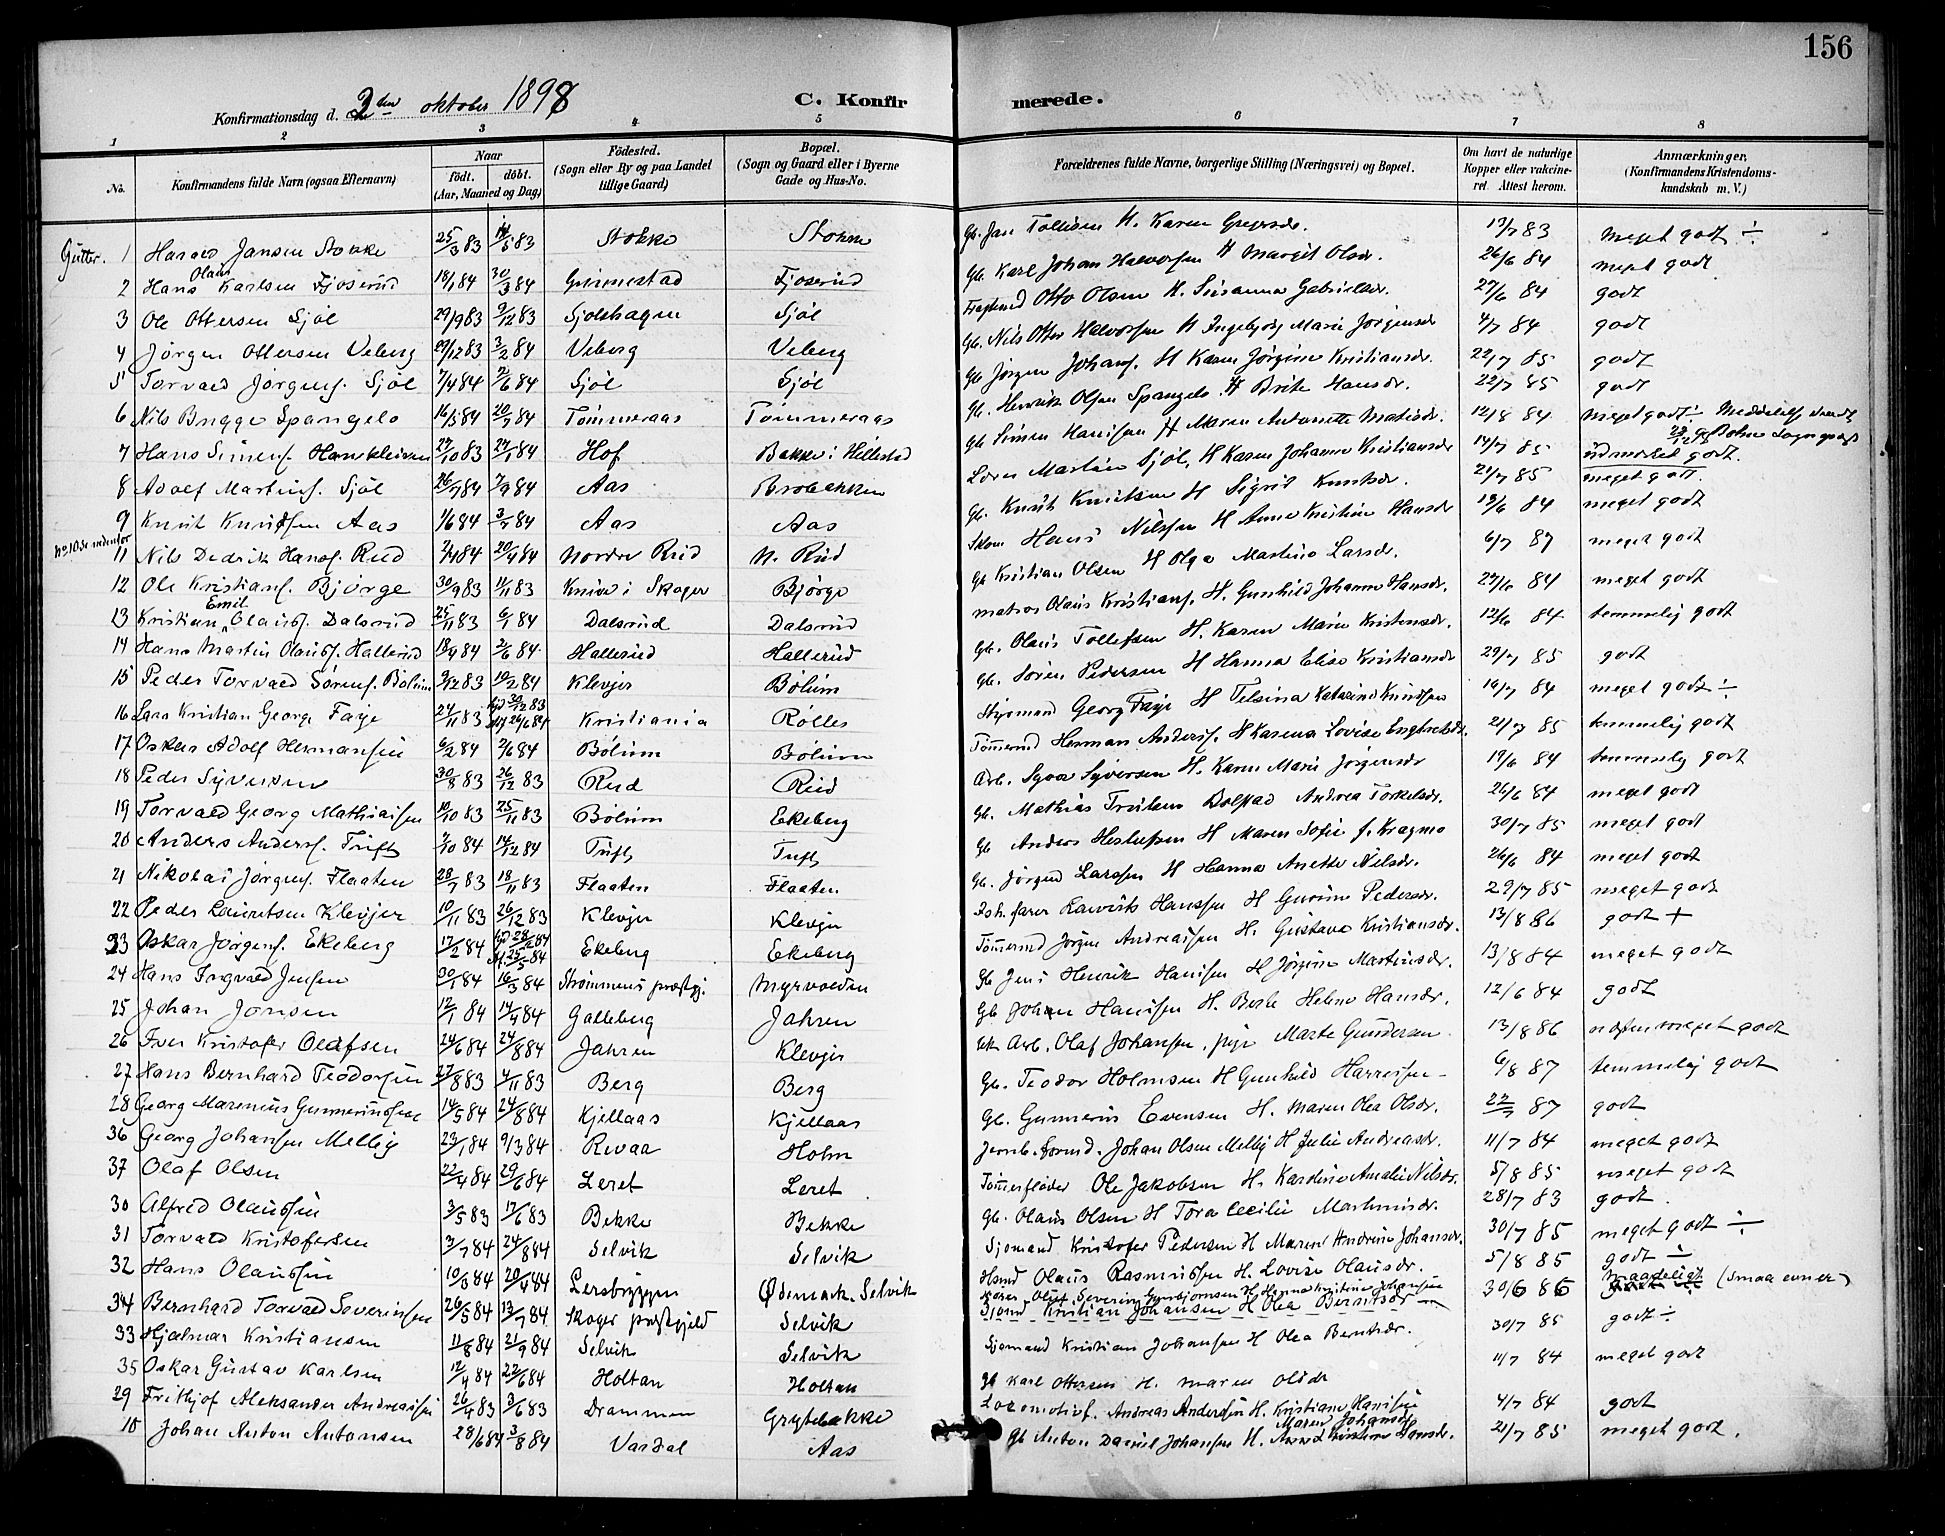 156
Konfirmationsdag d. 2den oktober 1898 C. Konfirmerede.
1 2 3 4 5 6 7 8
No. Konfirmandens fulde Navn (ogsaa Efternavn) Naar födt. döbt. (Aar, Maaned og Dag) Födested. (Sogn eller By og paa Landet tillige Gaard) Bopæl. (Sogn og Gaard eller i Byerne Gade og Hus-No. Forældrenes fulde Navne, borgerlige Stilling (Næringsvei) og Bopæl. Om havt de naturlige Kopper eller vakcineret Attest herom. Anmærkninger. (Konfirmandens Kristendomskundskab m. V.)
Gutter. 1 Harald Jansen Stokke 25/3 83 14/5 83 Stokke Stokke Gb. Jan Tollefsen H. Karen Gregersdr. 17/7 83 meget godt ÷
2 Hans Olaus Karlsen Fjøserud 18/1 84 30/3 84 Grimestad Fjøserud Gb. Karl Johan Halvorsen H Margit Olsdr. 26/6 84 meget godt
3 Ole Ottersen Sjøl 29/9 83 9/12 83 Sjølshagen Sjøl Otto Olsen H. Susanna Gabrielsdr. 27/6 84 godt
4 Jørgen Ottersen Veberg 29/12 83 3/2 84 Veberg Veberg Gb. Nils Otter Halvorsen H Ingebjørg Marie Jørgensdr 4/7 84 godt
5 Torvald Jørgens. Sjøl 7/4 84 2/6 84 Sjøl Sjøl Gb Jørgen Johans. H Karen Jørgine Kristiansdr. 22/7 85 godt
6 Nils Brygge Spangelo 16/5 84 20/7 84 Tømmeraas Tømmeraas Gb. Henrik Olsen Spangelo. H Brite Hansdr. 22/7 85 godt
7 Hans Simens. Hankleiven 27/10 83 27/1 84 Hof Bakke i Hillestad Gb Simen Hansen H Maren Antonette Matisdr. 12/8 84 meget godt ÷
8 Adolf Martins. Sjøl 26/7 84 7/9 84 Aas Brobekken Martin Sjøl, H Karen Johanne Kristiansdr 14/7 85 udmerket godt.
9 Knut Knudsen Aas 1/6 84 3/8 84 Aas Aas Gb. Knut Knutsen H Sigrid Knutsdr. 21/7 85 meget godt.
No 10 se nedenfor
11 Nils Dedrik Hans. Rud 7/4 84 20/4 84 Nordre Rud N. Rud Skom Hans Nilssen H Anne Kristine Hansdr 19/6 84 meget godt
12 Ole Kristians. Bjørge 30/9 83 11/11 83 Knive i Skoger Bjørge Gb Kristian Olsen H Olga Martine Larsdr. 6/7 87 meget godt
13 Kristian Emil Olauss. Dalsrud 25/11 83 6/1 84 Dalsrud Dalsrud matros Olaus Kristians. H. Gunhild Johanne Hansdr. 27/6 84 meget godt
14 Hans Martin Olauss. Hallerud 18/4 84 2/6 84 Hallerud Hallerud Gb. Olaus Tollefsen H. Karen Marie Kristensdr. 12/6 84 temmelig godt
15 Peder Torvald Sørens. Bølum 9/12 83 10/2 84 Klevjer Bølum Gb. Søren Pedersen H Hanna Elise Kristiansdr 29/7 85 godt
16 Lars Kristian Georg Faye 24/11 83 24/6 84 Kristiania Rølles Styrmand Georg Faye H Telsina Katrine Knudsen 16/7 84 meget godt ÷
17 Oskar Adolf Hermansen 6/2 84 2/6 84 Bølum Bølum Tømmermd Herman Anderss. H Karena Lovise Engebretsdr. 21/7 85 temmelig godt
18 Peder Syversen 30/8 83 26/12 83 Rud Rud Arb. Syver Syversen H. Karen Marie Jørgensdr 19/6 84 temmelig godt
19 Torvald Georg Mathiassen 10/10 83 25/11 83 Bølum Ekeberg Gb. Mathias Trulsen Bolstad Andrea Torkelsdr. 26/6 84 meget godt
20 Anders Anders. Tuft 7/10 84 14/12 84 Tuft Tuft Gb Anders H Maren Sofie f. Kragmo 30/7 85 meget godt
21 Nikolai Jørgens. Flaaten 28/7 83 18/11 83 Flaaten Flaaten Gb. Jørgen Larssen H Hanna Anette Nilsdr. 26/6 84 meget godt
22 Peder Lauritsen Klevjer 10/11 83 26/12 83 Klevjer Klevjer Laurits Hanssen H Gurine Pedersdr. 29/7 85 meget godt
23 Oskar Jørgens. Ekeberg 17/2 84 25/5 84 Ekeberg Ekeberg Tømermd Jørgen Andreassen H. Gustava Kristiansdr. 13/8 86 godt +
24 Hans Ingvald Jensen 30/1 84 16/3 84 Strømmens præstgj. Myrvolden Gb Jens Henrik Hanssen H Jørgine Martinsdr. 13/8 84 meget godt
25 Johan Jonsen 12/1 84 14/4 84 Galleberg Jahren Gb Johan Hanssen H. Berte Helene Hansdr. 12/6 84 godt
26 Iver Kristofer Olafsen 24/6 84 24/8 84 Jahren Klevjer Arb. Olaf Johansen, pige Marte Gundersen 13/8 86 næsten meget godt
27 Hans Bernhard Teodorsen 27/8 83 4/11 83 Berg Berg Gb. Teodor Holmsen H Gunhild Harrisen 6/8 87 temmelig godt
28 Georg Marenius Gunneriussen 14/5 84 24/8 84 Kjellaas Kjellaas Gb. Gunnerius Evensen H. Maren Olea Olsdr. 22/7 87 godt
36 Georg Johansen Melby 23/1 84 9/3 84 Revaa Holm Jernb. formd. Johan Olsen Melby H Julie Andreasdr. 11/7 84 meget godt
37 Olaf Olsen 22/4 84 29/6 84 Leret Leret Tømmerfløder Ole Jakobsen H. Karoline Amalie Nilsdr. 5/8 85 meget godt
30 Alfred Olaussen 3/5 83 17/6 83 Bekke Bekke Gb. Olaus Olsen H Tora Cecilie Martinusdr. 28/7 83 godt.
31 Torvald Kristofersen 3/7 84 24/8 84 Selvik Selvik Sjømand Kristofer Pedersen H Maren Andrine Johansdr. 30/7 85 meget godt ÷
32 Hans Olaussen 10/3 84 20/4 84 Lersbryggen Ødemark. Selvik Hsmd Olaus Rasmussen H. Lovise Olausdr. 5/8 85 godt ÷
34 Bernhard Torvald Severinsen 26/5 84 13/7 84 Skoger præstgjeld Selvik Oluf Severin Gunbjørnsen H Hanna Kristine Johansen 30/6 86 maadeligt (smaa evner)
Sjømd Kristian Johansen H Olea Berntsdr
33 Hjalmar Kristiansen 11/8 84 21/9 84 Selvik Selvik Sjømand Kristian Johansen H Olea Berntsdr. 30/7 85 godt ÷
35 Oskar Gustav Karlsen 12/4 84 22/6 84 Holtan Holtan Gb Karl Ottersen H. Maren Olsdr 11/7 84 meget godt
29 Frithjof Aleksander Andreassen 26/4 83 3/6 83 Drammen Grytebakke Lokomotivf. Andreas Andersen H. Kristiane Hanssen 4/7 84 godt
10 Johan Anton Antonsen 28/6 84 3/8 84 Vardal Aas Gb Anton Daniel Johansen H. Maren Johansdr. 21/7 85 meget godt.